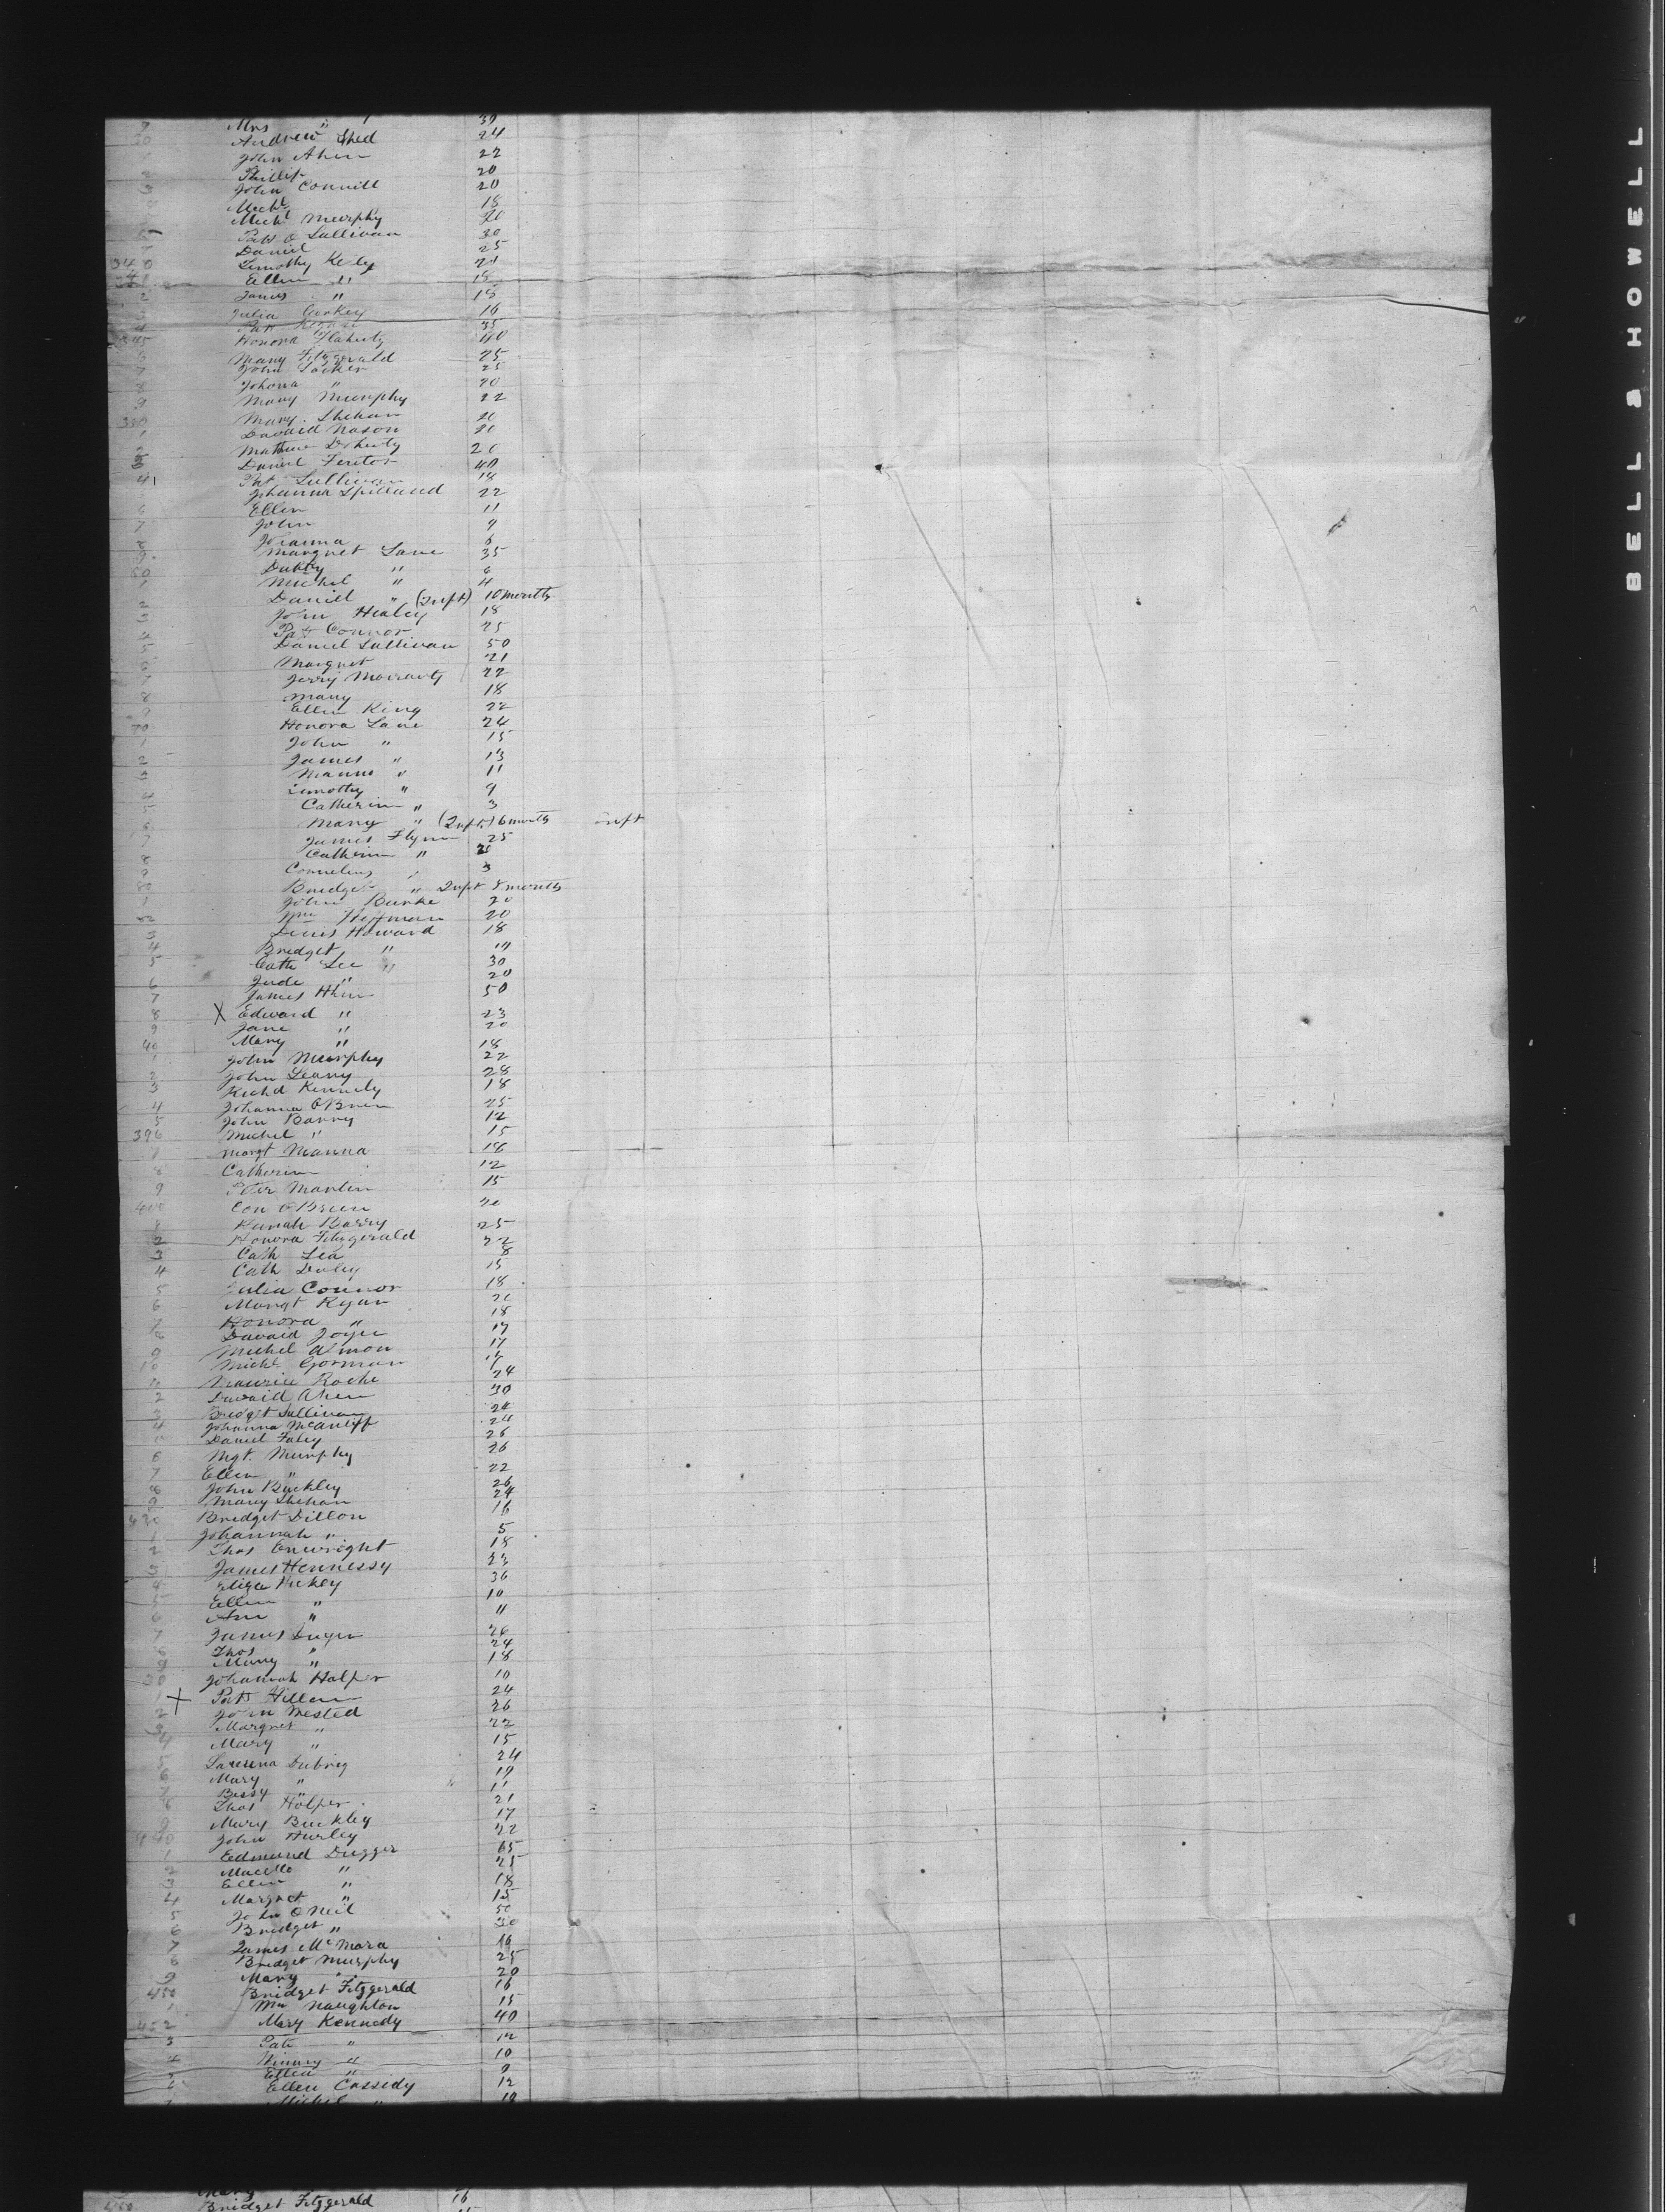 9 Mrs " 30
30 Andrew Shed 24
John Ahern 22
2 Phillip 20
3 John Connill 20
Michl 18
Michl Murphy 20
Patt O Sullivan 30
Daniel 25
340 Timothy Kely 21
Ellen " 18
2 James " 18
Julia Corkey 16
Patt 35
345 Honora Flaherty 40
6 Mary Fitzgerald 25
7 John Tocker 25
8 Johona " 20
9 Mary Murphy 22
350 Mary Shehan 20
1 Davaid Nason 21
2 Mathew Doherty 20
3 Daniel Feritor 40
4 Pat Sullivan 18
Johanna Spilland 22
6 Ellen 11
7 John 9
8 Joanna 6
9 Margret Lane 35
60 " 6
1 Michel " 4
2 Daniel " (Inft) 10 months
3 John Healey 18
4 Pat Connor 25
5 Daniel Sullivan 50
6 Margret 21
7 Jerry Moirarty 22
8 Mary 18
9 Ellen King 22
70 Honora Lane 24
1 John " 15
2 James " 13
3 Maurus " 11
4 Timothy " 9
5 Catherine " 3
6 Mary " (Inft) 6 months Inft
7 James Flynn 25
8 Catherin "
9 Cornelius " 3
80 Bridget " Inft 8 months
1 John Burke 20
82 Wm Heffman 20
3 Denis Howard 18
4 Bridget " 19
5 Cath Lee " 30
6 Jude " 20
7 James Ahern 50
8 X Edward " 23
9 Jane " 20
40 Mary " 18
1 John Murphy 22
2 John Leary 28
3 Richd Kennedy 18
4 Johanna OBrien 25
5 John Barry 12
396 Michel " 15
7 Margt Manna 18
8 Catherin 12
9 Peter Martin 15
400 Con OBrien 20
1 Hanah Barry 25
2 Honora Fitzgerald 22
3 Cath Lea 8
4 Cath Doley 15
5 Julia Connor 18
6 Margt Ryan 21
7 Honora " 18
8 Davaid Joyce 19
9 Michel Almon 17
10 Michl Gorman
11 Maurice Roche 24
2 Davaid Ahern 30
3 Bridget Sullivan 24
4 Johanna McAuliff 24
5 Daniel Foley 26
6 Mgt. Murphy 26
7 Ellen " 22
8 John Buckley 26
9 Mary Shehan 24
420 Bridget Dillon 16
1 Johannah " 5
2 Thos Enwright 18
3 James Hennessy 23
4 Eliza Hickey 36
5 Ellen " 10
6 Ann " 11
7 James Dwyer 26
8 Thos " 24
9 Mary " 18
30 Johannah Halper 10
1 X Patt Hillan 24
2 John Nested 26
3 Margret " 22
4 Mary " 15
5 Laurena Dubrig 24
6 Mary " 19
7 Bessy " 11
8 Thos Holper 21
9 Mary Buckley 17
440 John Hurley 22
1 Edmund Dugger 65
2 Macelle " 25
3 Ellen " 18
4 Margret " 15
5 John O Neil 50
6 Bridget " 30
7 James McMara 16
8 Bridget Murphy 25
9 Mary " 20
450 Bridget Fitzgerald 16
1 Wm Naughton 15
452 Mary Kennedy 40
3 Patt " 12
4 Winny " 10
5 Ellen " 9
6 Ellen Cassedy 12
Michel " 10
Mary 16
450 Bridget Fitzgerald
BELL & HOWELL